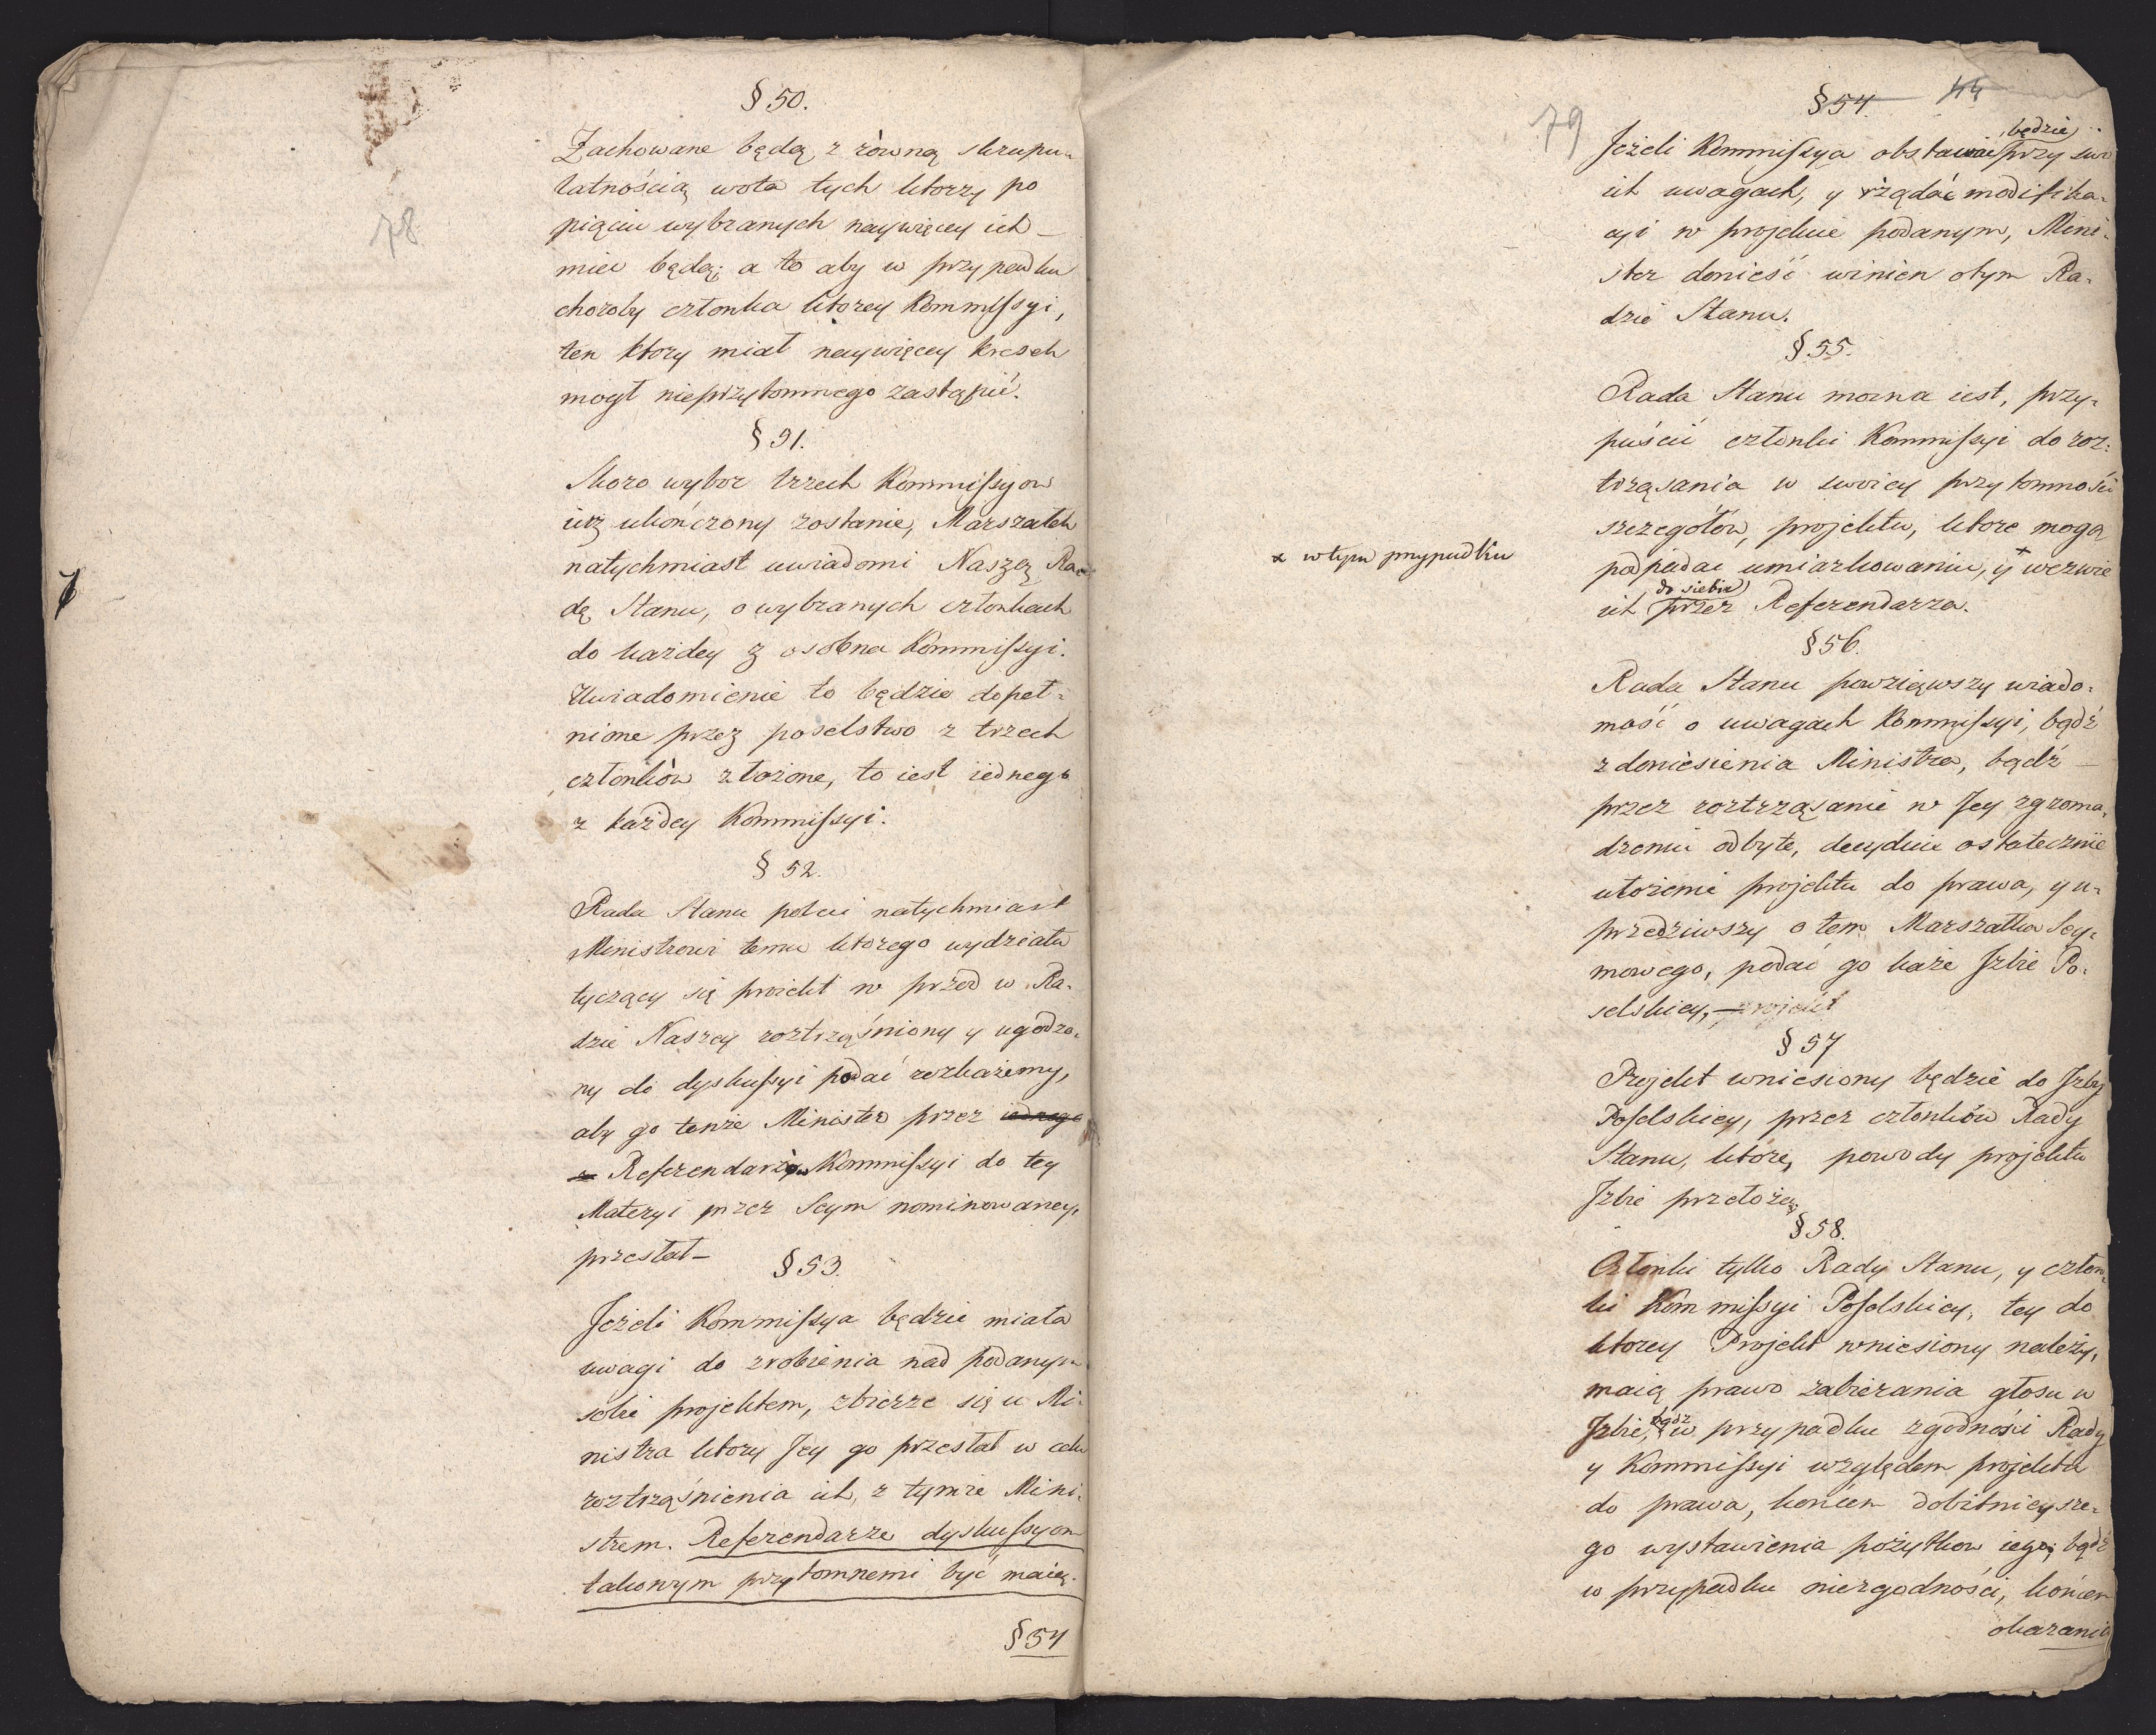 78
§ 50.
Zachowane będą z równą skrupu-
latnością wota tych ktorzy po
pięciu wybranych naywięcey ich
mieć będą; a to aby w przypadku
choroby członka ktorey Kommissyi,
ten ktory miał naywięcey kresek
mogł nieprzytomnego zastąpić.
§ 51.
Skoro wybor trzech Kommissyow
iuż ukończony zostanie, Marszałek
natychmiast uwiadomi Naszą Ra-
dę Stanu, o wybranych członkach
do każdey z osobna Kommissyi.
Uwiadomienie to będzie dopeł-
nione przez poselstwo z trzech
członków złożone, to iest iednego
z każdey Kommissyi.
§ 52.
Rada Stanu poleci natychmiast
Ministrowi temu ktorego wydziału
tyczący się proiekt w przód w Ra-
dzie Naszey roztrząśniony y ugodzo-
ny do dyskussyi podać rozkażemy,
aby go tenże Minister przez iednego
z Referendarzy Kommissyi do tey
Materyi przez Seym nominowaney,
przesłał —
§ 53.
Jeżeli Kommissya będzie miała
uwagi do zrobienia nad podanym
sobie projektem, zbierze się u Mi-
nistra ktory Jey go przesłał w celu
roztrząśnienia ich, z tymże Mini-
strem. Referendarze dyskussyom
takowym przytomnemi być maią.
§ 54
79
44
§ 54.
będzie
Jeżeli Kommissya obstawać przy swo
ich uwagach, y rządać modifika-
cyi w projekcie podanym, Mini-
ster donieść winien otym Ra-
dzie Stanu.
§ 55.
Rada Stanu mocna iest, przy-
puścić członki Kommissyi do roz-
trząsania w swoiey przytomności
szczegółów, projektu, ktore mogą
podpadać umiarkowaniu, y x wezwie
x w tym przypadku
do siebie
ich przez Referendarza.
§ 56.
Rada Stanu powziąwszy wiado-
mość o uwagach Kommissyi, bądź
z doniesienia Ministra, bądź —
przez roztrząsanie w Jey zgroma-
dzeniu odbyte, decyduie ostatecznie
ułożenie projektu do prawa, y u-
przedziwszy o tem Marszałka Sey-
mowego, podać go każe Jzbie Po-
selskiey, projekt
§ 57
Projekt wniesiony będzie do Jzby
Poselskiey, przez członków Rady
Stanu, którzy powody projektu
Jzbie przełożą
§ 58.
Członki tylko Rady Stanu, y człon-
ki Kommissyi Poselskiey, tey do
ktorey Projekt wniesiony należy,
maią prawo zabierania głosu w
bądz
Jzbie, w przypadku zgodności Rady
y Kommissyi względem projektu
do prawa, końcem dobitnieysze-
go wystawienia pożytkow iego; bądź
w przypadku niezgodności, końcem
okazania